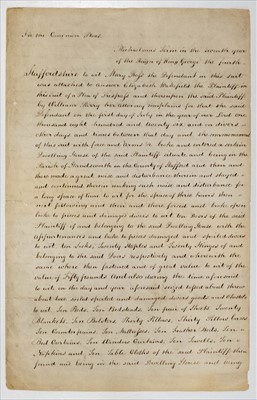 In the Common Pleas.
Michaelmas Term in the seventh year
of the Reign of King George the fourth
Staffordshire to wit Mary the Defendant in this suit
was attached to answer Elizabeth Wakefield the Plaintiff in
this suit of a Plea of Trespass and thereupon the said Plaintiff
by William her attorney complains for that the said
Defendant on the first day of July in the year of our Lord one
thousand eight hundred and twenty six and on divers
other days and times between that day and the commencement
of this suit with force and arms &c broke and entered a certain
Dwelling House of the said Plaintiff situate and being in the
Parish of Handsworth in the County of Stafford and then and
there made a great noise and disturbance therein and stayed
and continued therein making such noise and disturbance for
a long space of time to wit for the space of three hours then
next following and then and there forced and broke open
broke to pieces and damaged divers to wit ten Doors of the said
Plaintiff of and belonging to the said Dwelling House with the
appurtenances and broke to pieces damaged and spoiled divers
to wit ten Locks, Twenty Staples and Twenty Hinges of and
belonging to the said Doors respectively and wherewith the
same were then fastened and of great value to wit of the
value of Fifty pounds And also during the time aforesaid
to wit on the day and year aforesaid seized tossed about threw
about and spoiled and damaged divers goods and Chattels
to wit Ten Beds, Ten Bedsteads, Ten pair of Sheets, Twenty
Blankets, Ten Bolsters, Thirty Pillows, Thirty Pillow cases
Ten Counterpanes, Ten Mattresses, Ten Feather Beds, Ten
Bed Curtains, Ten Window Curtains, Ten Towells, Ten
Napkins and Ten Table Cloths of the said Plaintiff then
found and being in the said Dwelling House and being